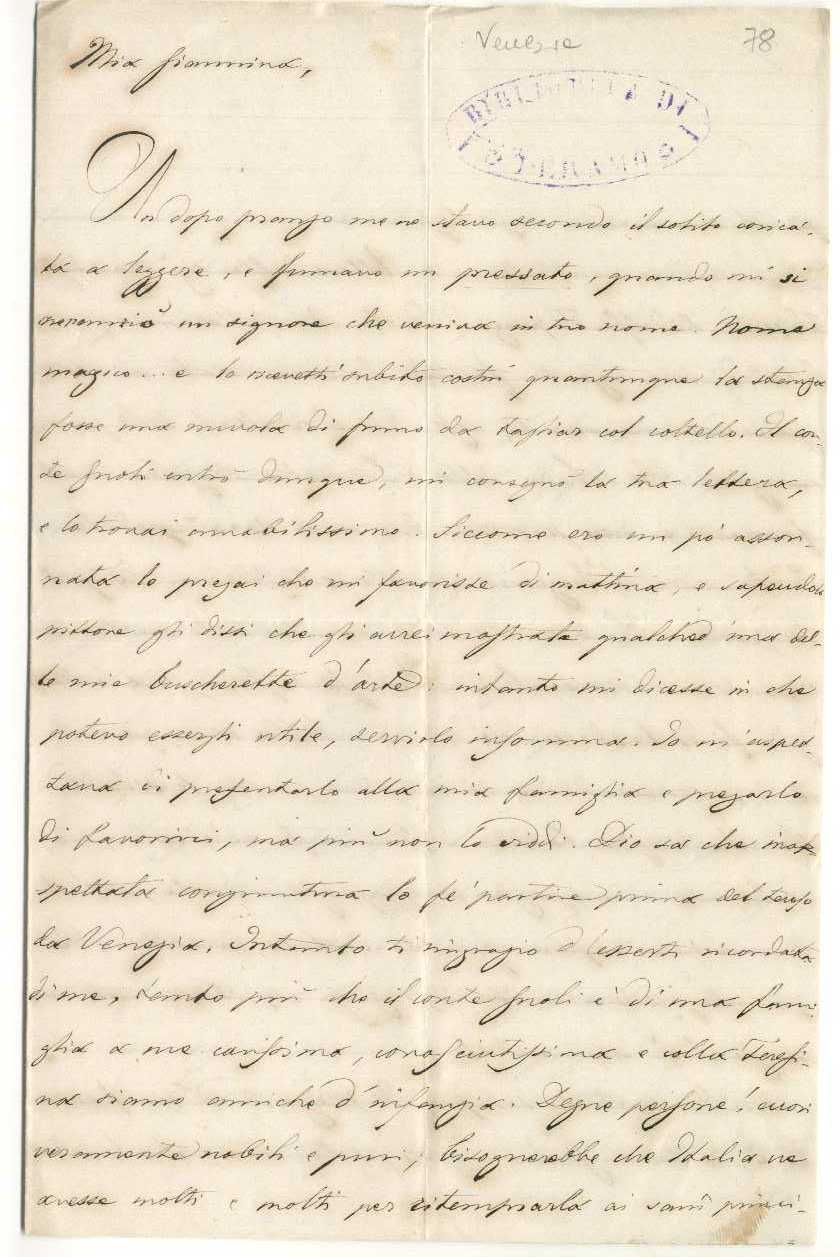 Venezia 78
Mia Giannina,
BIBLIOTECA DI
TERAMO
Un dopo pranzo me ne stavo secondo il solito corica-
ta a leggere, e fumavo un pressato, quando mi si
annunziò un signore che veniva in tuo nome. Nome
magico... e lo ricevetti subito costui quantunque la stanza
fosse una nuvola di fumo da tagliar col coltello. Il con-
te Gnoli entrò dunque, mi consegnò la tua lettera,
e lo trovai amabilissimo. Siccome ero un pò asson-
nata lo pregai che mi favorisse di mattina, e sapendolo
pittore gli dissi che gli avrei mostrate qualched'una del-
le mie buscherette d'arte: intanto mi dicesse in che
potevo essergli utile, servirlo insomma. Io m'aspet-
tava di presentarlo alla mia famiglia e pregarlo
di favorirci, ma più non lo viddi. Dio sa che ina-
spettata congiuntura lo fe' partire prima del tempo
da Venezia. Intanto ti ringrazio d'esserti ricordata
di me, tanto più che il conte Gnoli è di una fami-
glia a me carissima, conosciutissima e colla Teresi-
na siamo amiche d'infanzia. Degne persone! cuori
veramente nobili e puri; bisognerebbe che Italia ne
avesse molti e molti per ritemprarla ai sani princi-